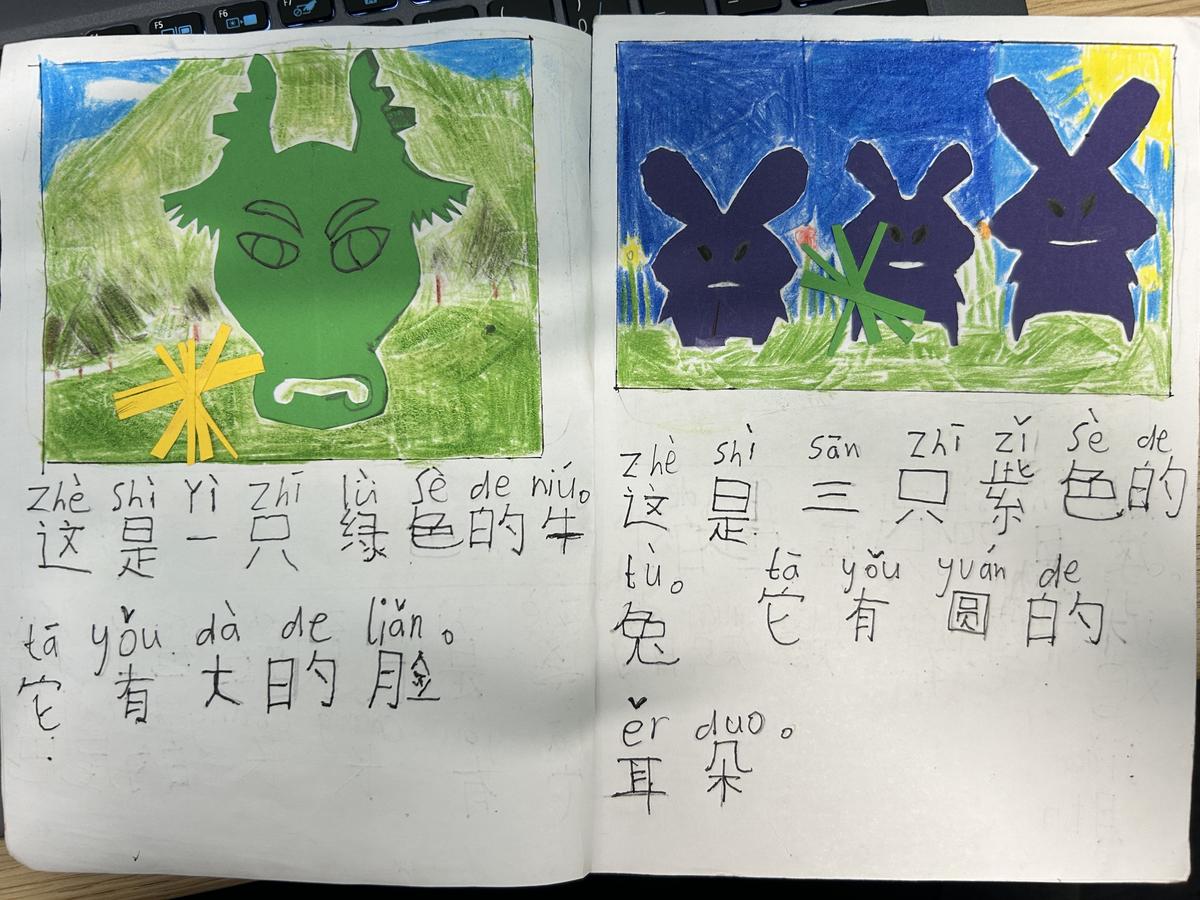 F5
F6
F7
zhè shì yì zhī lǜ sè de niú。
这 是 一 只 绿 色 的 牛
tā yǒu dà de liǎn。
它 有 大 的 脸
zhè shì sān zhī zǐ sè de
这 是 三 只 紫 色 的
tù。 tā yǒu yuán de
兔 它 有 圆 的
ěr duo。
耳 朵